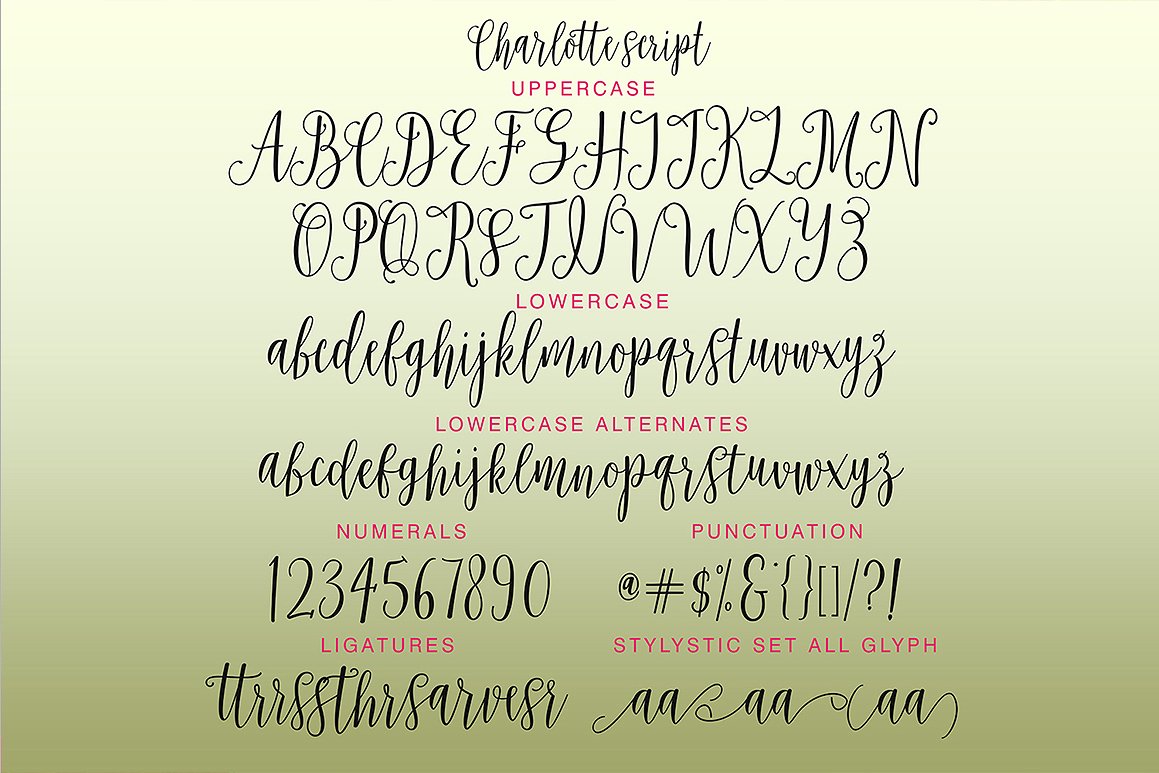 Charlotte script
UPPERCASE
ABCDEFGHIJKLMN
OPQRSTUVWXYZ
LOWERCASE
abcdefghijklmnopqrstuvwxyz
LOWERCASE ALTERNATES
abcdefghijklmnopqrstuvwxyz
NUMERALS
PUNCTUATION
1234567890
@#$%&{}[]/?!
LIGATURES
STYLYSTIC SET ALL GLYPH
ttrrssthrsarvesr
aa aa aa